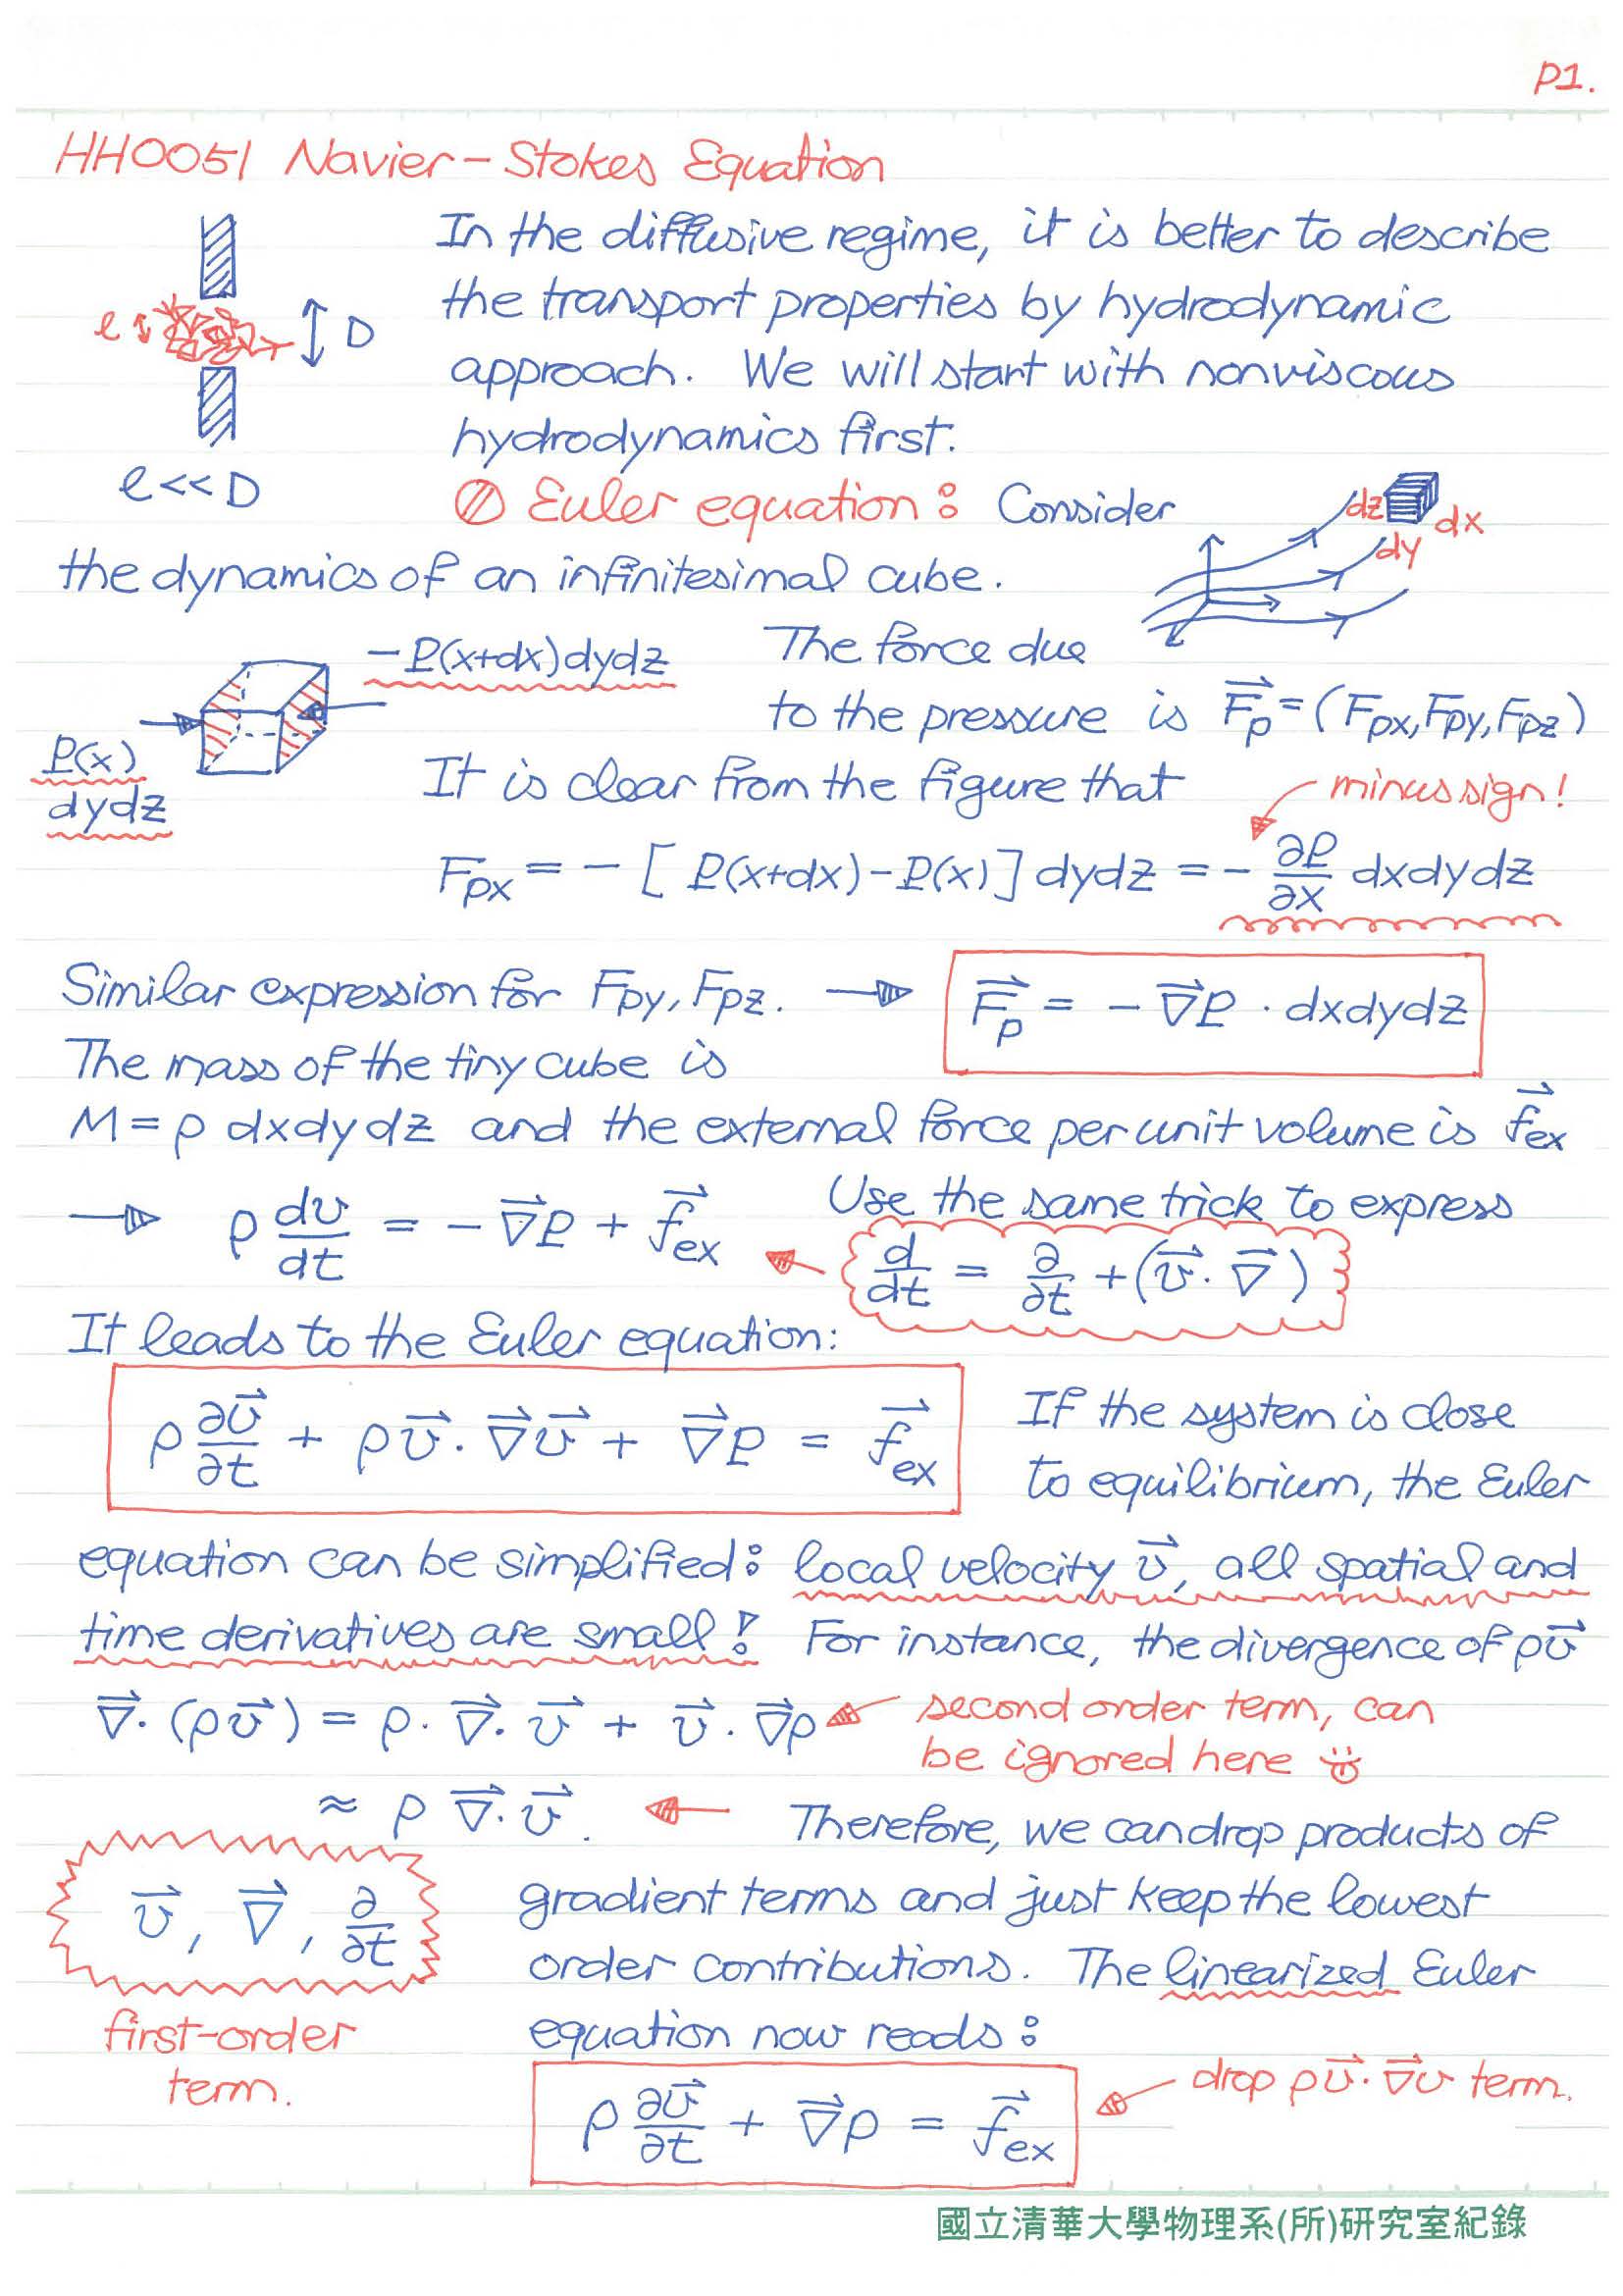 P1.
HH0051 Navier-Stokes Equation
In the diffusive regime, it is better to describe
the transport properties by hydrodynamic
ℓ D
approach. We will start with nonviscous
hydrodynamics first.
ℓ << D
Euler equation: Consider
dz dx
dy
the dynamics of an infinitesimal cube.
-P(x+dx)dydz
The force due
to the pressure is F⃗p = (Fpx, Fpy, Fpz)
P(x)
dydz
It is clear from the figure that
minus sign!
Fpx = -[P(x+dx)-P(x)]dydz = -∂P/∂x dxdydz
Similar expression for Fpy, Fpz. → F⃗p = -∇⃗P · dxdydz
The mass of the tiny cube is
M = ρ dxdydz and the external force per unit volume is f⃗ex
→ ρ dv/dt = -∇⃗P + f⃗ex
Use the same trick to express
d/dt = ∂/∂t + (v⃗·∇⃗)
It leads to the Euler equation:
ρ ∂v⃗/∂t + ρv⃗·∇⃗v⃗ + ∇⃗P = f⃗ex
If the system is close
to equilibrium, the Euler
equation can be simplified: local velocity v⃗, all spatial and
time derivatives are small! For instance, the divergence of ρv⃗
∇⃗·(ρv⃗) = ρ·∇⃗·v⃗ + v⃗·∇⃗ρ
second order term, can
be ignored here
≈ ρ ∇⃗·v⃗.
Therefore, we can drop products of
v⃗, ∇⃗, ∂/∂t
gradient terms and just keep the lowest
order contributions. The linearized Euler
first-order
term.
equation now reads:
drop ρv⃗·∇⃗v term.
ρ ∂v⃗/∂t + ∇⃗p = f⃗ex
國立清華大學物理系(所)研究室紀錄